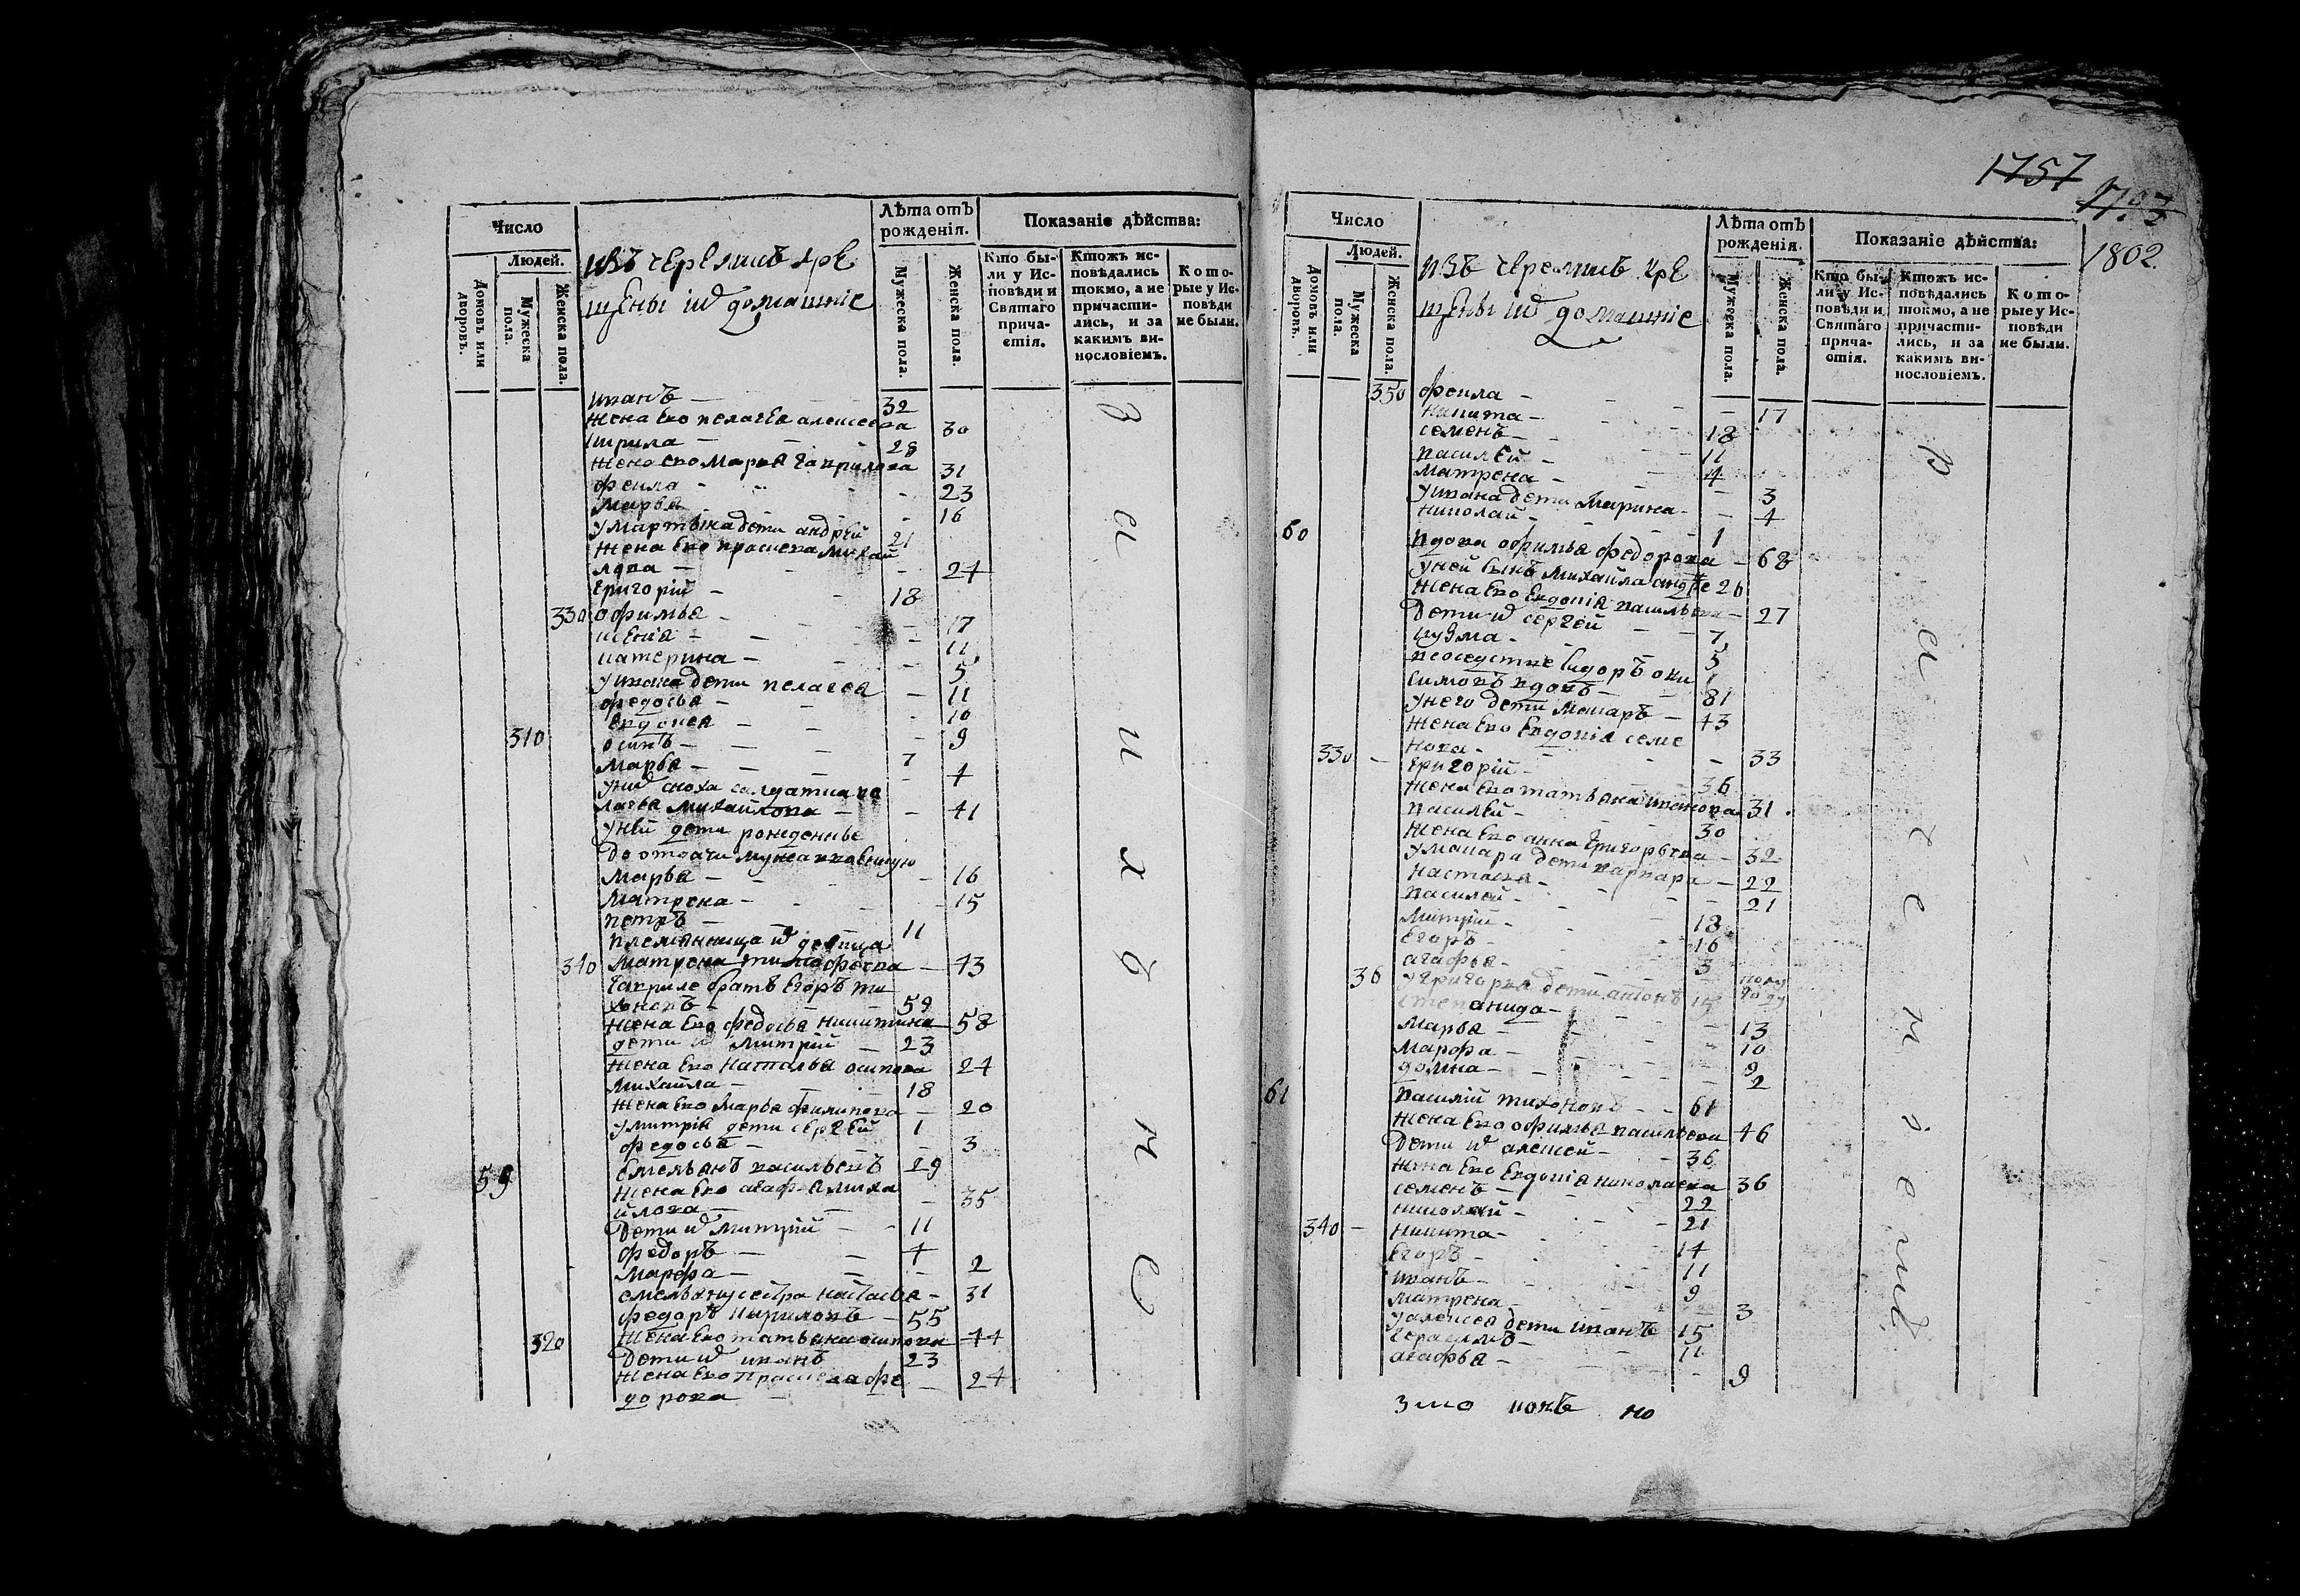 Число
Людей.
Домовъ или дворовъ.
Мужеска пола.
Женска пола.
изъ черемисъ кре
щены ихъ домашние
Лѣта отъ рожденія.
Мужеска пола.
Женска пола.
Показаніе дѣйства:
Кто бы-
ли у Ис-
повѣди и
Святаго
прича-
стія.
Ктожъ ис-
повѣдались
токмо, а не
причасти-
лись, и за
какимъ ви-
нословіемъ.
Кото-
рые у Ис-
повѣди
не были.
иванъ 32
жена ево пелагея алексеева 30
кирила 28
жена ево марья гаврилова 31
фекла 23
марья 16
у мартына дети андрей 21
жена ево прасковя михай
лова 24
григорий 18
330 офимья 17
ксения 11
катерина 5
у ивана дети пелагея 11
федосья 10
евдокея 9
310 осипъ 7
марья 4
у них сноха салдатка пе
лагея михайлова 41
у ней дети рожденные
до отдачи мужа
марья 16
матрена 15
петръ 11
племянница их девица
340 матрена тимофеева 43
гавриле братъ егоръ ти
хоновъ 59
жена ево федосья никитина 58
дети их митрий 23
жена ево наталья осипова 24
михайла 18
жена ево марья филипова 20
у митрия дети сергей 1
федосья 3
59 емельянъ васильевъ 29
жена ево агафья миха
йлова 35
дети их митрий 11
федоръ 4
марфа 2
емельяну сестра настасья 31
федоръ кириловъ 55
320 жена ево татьяна осипова 44
дети их иванъ 23
жена ево прасковя фе
дорова 24
в а и х ъ н е
1757
1802.
Число
Людей.
Домовъ или дворовъ.
Мужеска пола.
Женска пола.
изъ черемисъ кре
щены ихъ домашние
Лѣта отъ рожденія.
Мужеска пола.
Женска пола.
Показаніе дѣйства:
Кто бы-
ли у Ис-
повѣди и
Святаго
прича-
стія.
Ктожъ ис-
повѣдались
токмо, а не
причасти-
лись, и за
какимъ ви-
нословіемъ.
Кото-
рые у Ис-
повѣди
не были.
350 фекла 17
никита 18
семенъ 11
василей 4
матрена 3
у ивана дети марина 4
николай 1
60 вдова офимья федорова 68
у ней сынъ михайла андре 26
жена ево евдокия васильева 27
дети их сергей 7
кузма 5
сидоръ 1
симовъ вдовъ 81
у него дети макаръ 43
жена ево евдокия семе
нова 33
330 григорий 36
жена ево татьяна иванова 31
василей 30
жена ево анна григорьева 32
у макара дети варвара 22
настасья 21
василей 18
митрий 16
егоръ 3
агафья полу
году
36 у григорья дети антонъ 15
степанида 13
марья 10
марфа 9
домна 2
61 василий тихоновъ 61
жена ево офимья васильева 46
дети их алексей 36
жена ево евдокия николаева 36
семенъ 22
николай 21
340 никита 14
егоръ 11
иванъ 9
матрена 3
у алексея дети иванъ 15
герасимъ 11
агафья 9
р а ч е н i е м ъ